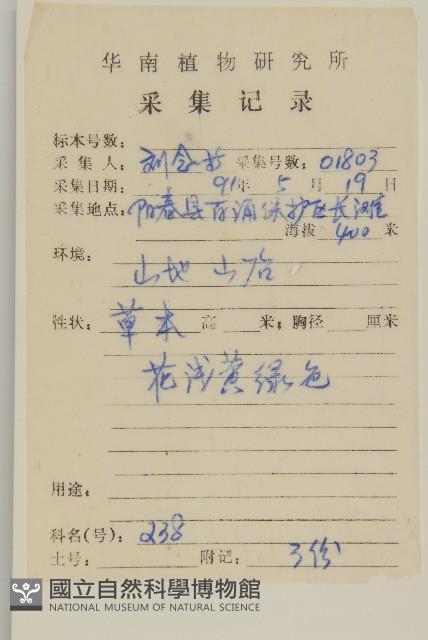 华南植物研究所
采集记录
标本号数：
采集人：刘念 采集号数：01803
采集日期：91年5月19日
采集地点：阳春县百涌保护区长
海拔400米
环境：
山地 山谷
性状：草本 高 米；胸径 厘米
花浅黄绿色
用途：
科名(号)：238
土号： 附记：3份
國立自然科學博物館
NATIONAL MUSEUM OF NATURAL SCIENCE